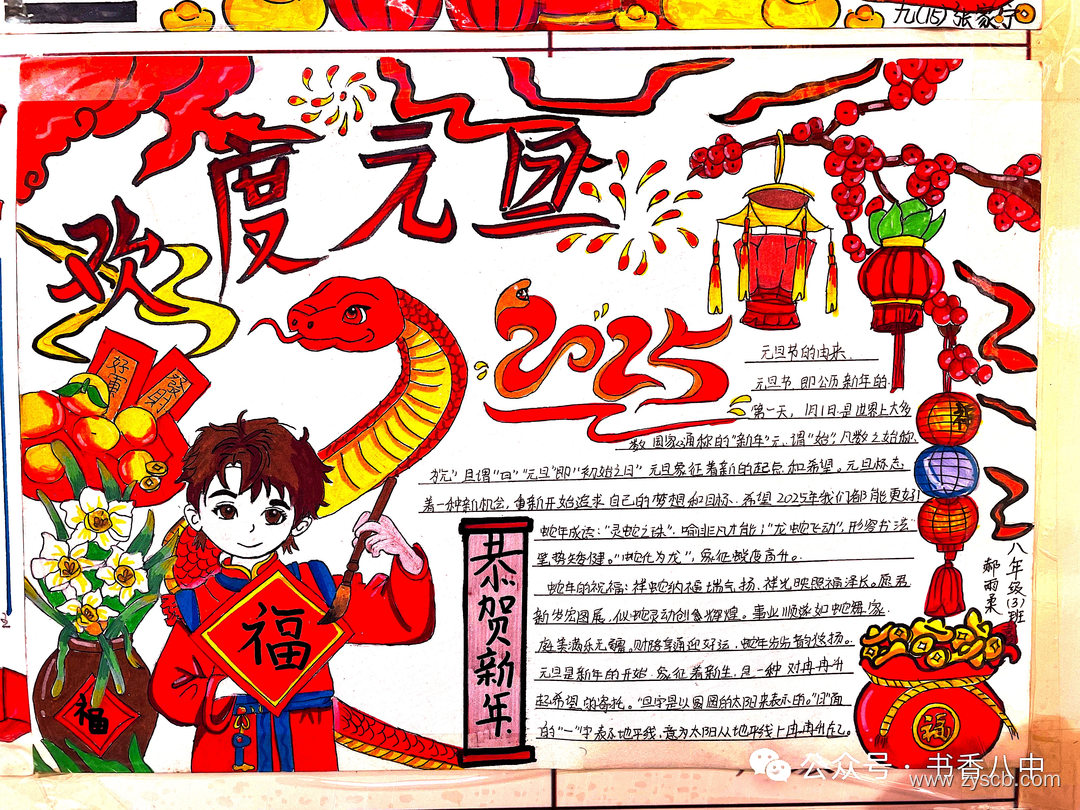 九(15)张家宁
欢度元旦
2025
好運
發財
福
福
福
恭贺新年
元旦节的由来
元旦节，即公历新年的
第一天，1月1日是世界上大多
数国家通称的"新年"元，谓"始"，凡数之始称
为"元"旦谓"日""元旦"即"初始之日"元旦象征着新的起点和希望。元旦标志
着一种新机会，重新开始追求自己的梦想和目标。希望2025年我们都能更好！
蛇年成语："灵蛇之珠"，喻非凡才能；"龙蛇飞动"，形容书法
笔势矫健。"蛇化为龙"，象征蜕变高升。
蛇年的祝福：祥蛇纳福瑞气扬，祥光映照福泽长。愿君
新岁宏图展，似蛇灵动创辉煌。事业顺遂如蛇舞，家
庭美满乐无疆。财路亨通迎好运，蛇年岁岁韵悠扬。
元旦是新年的开始，象征着新生，是一种对冉冉升
起希望的寄托。"旦字是以圆圆的太阳来表示的。"日"面
的"一"字表示地平线，意为太阳从地平线上冉冉升起。
八年级(3)班
郝雨
公众号·书香八中
www.zyscb.com